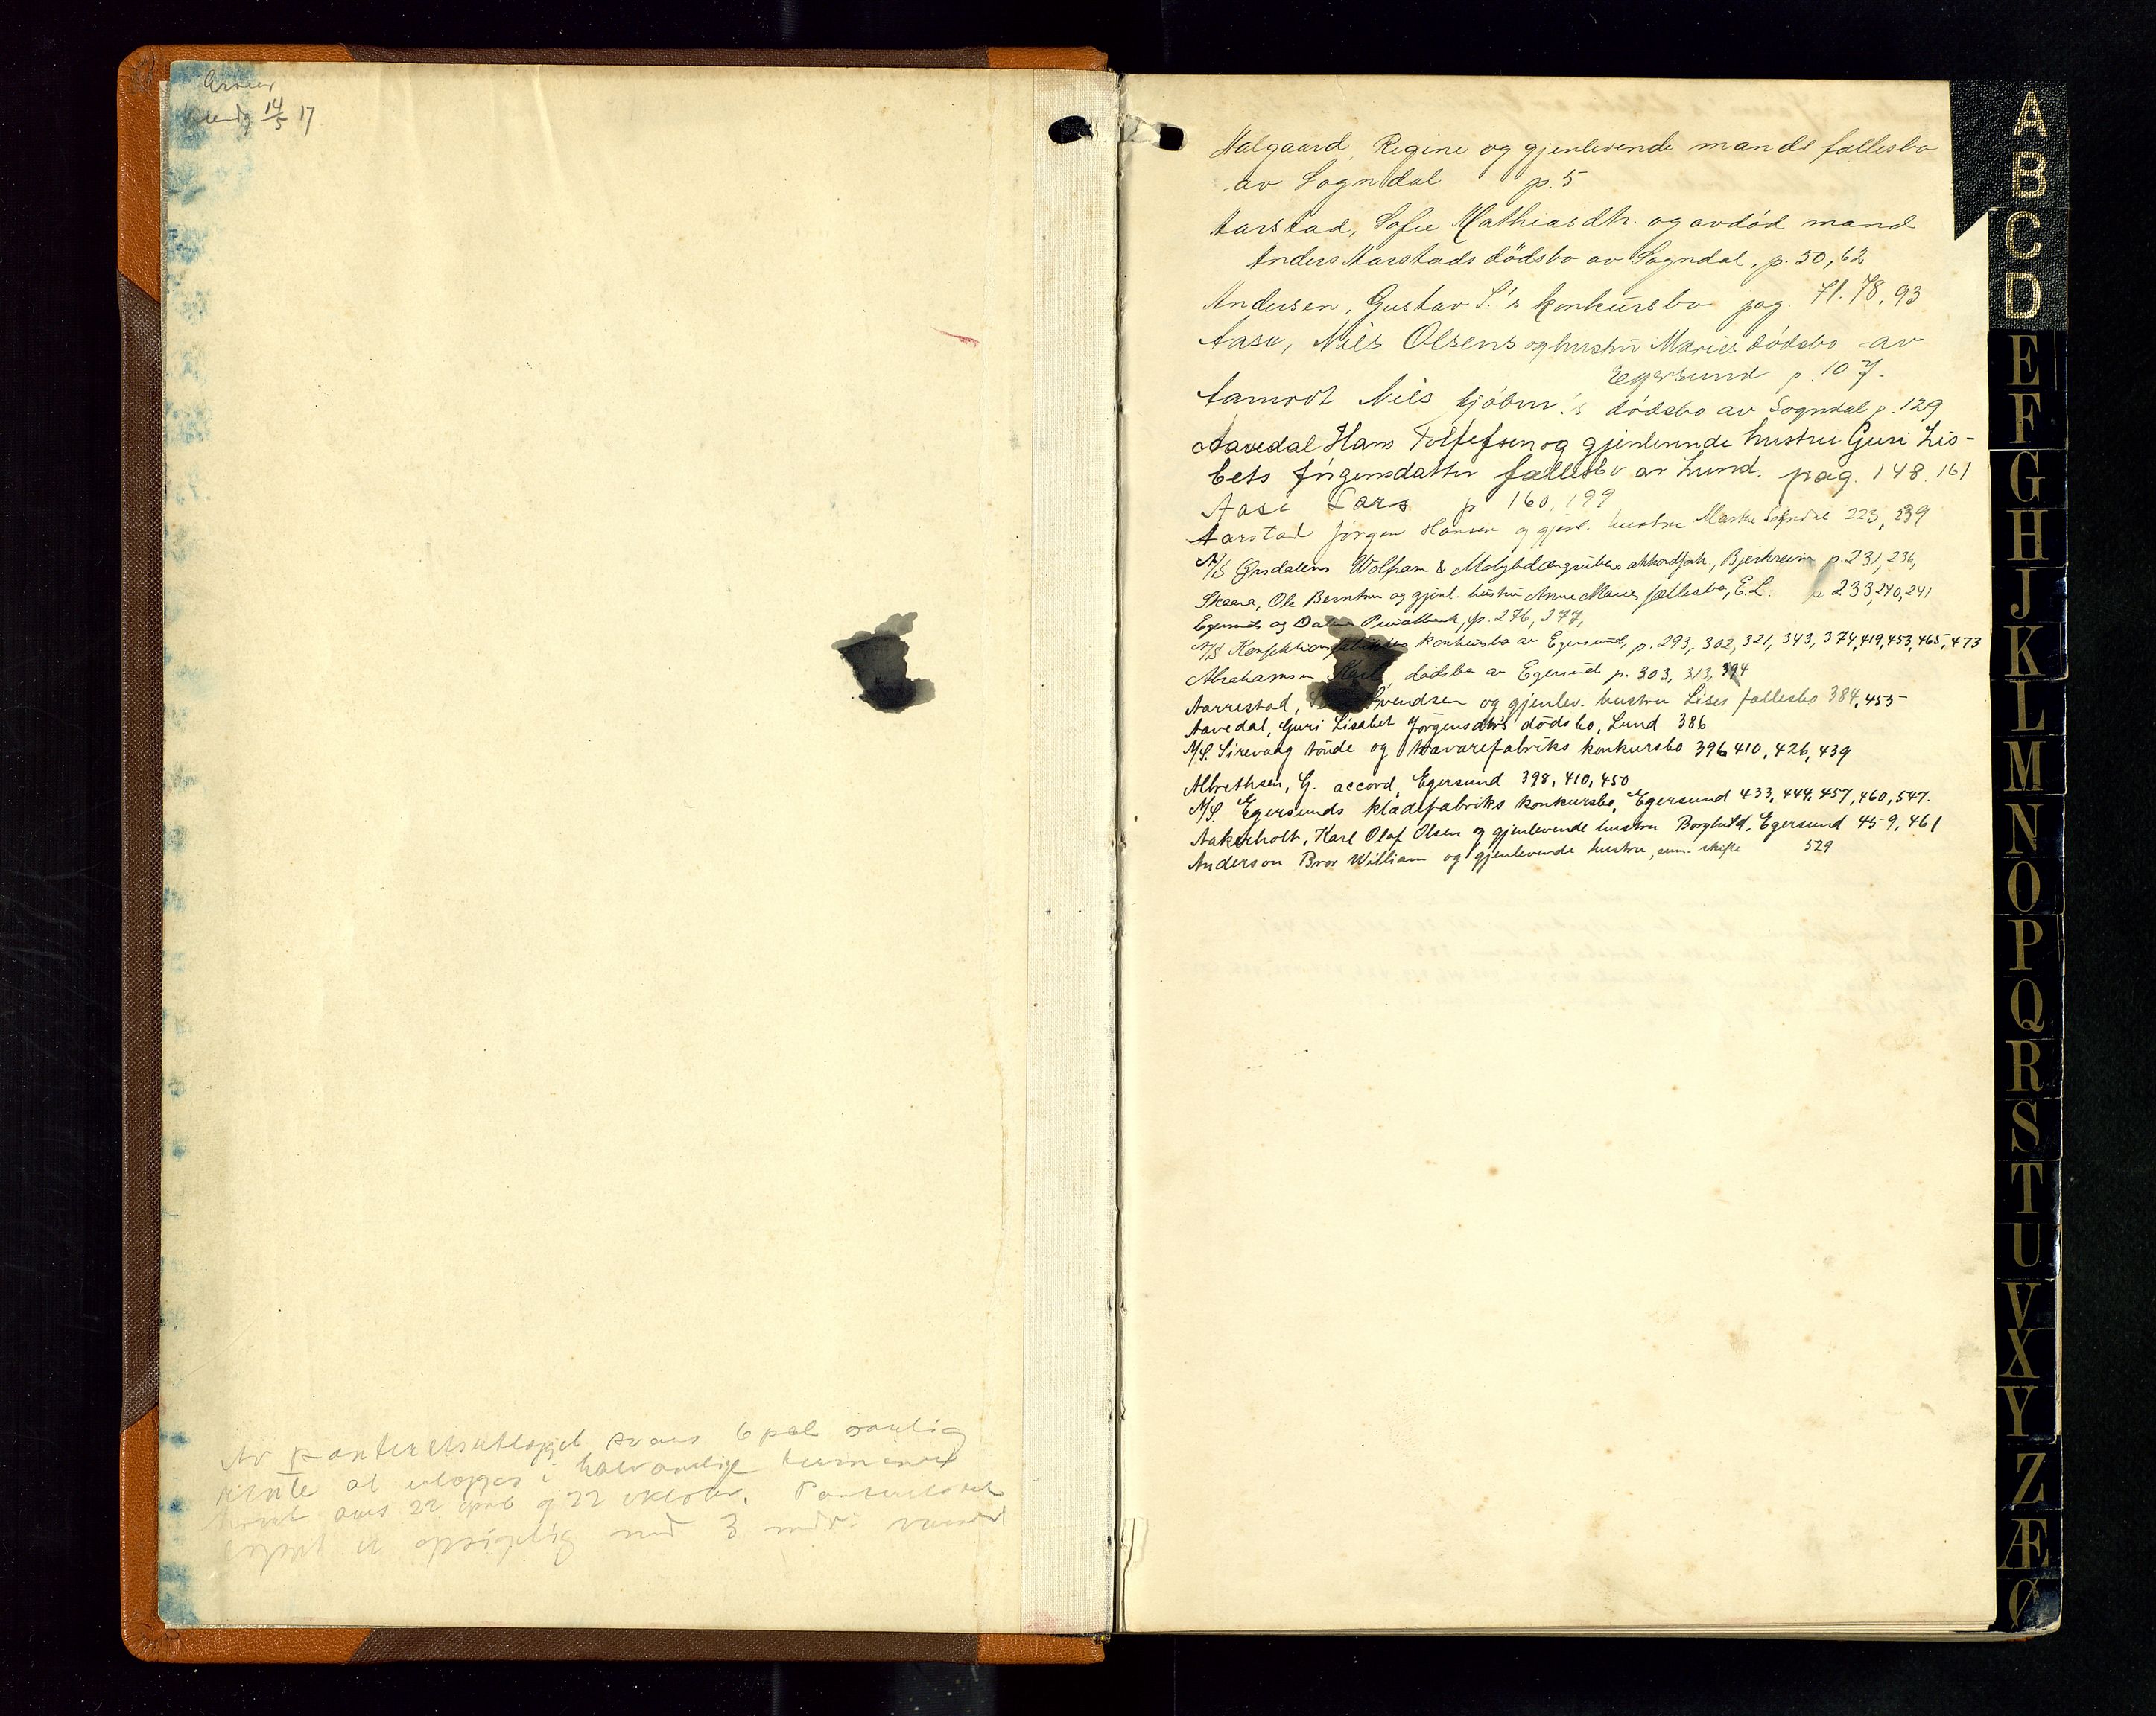 14/5 17
Av panteretsutlægget svares 6 pct aarlig
rente at erlægges i halvaarlige terminer
hvert aars 22 april og 22 oktober.
er opsigelig med 3 mdrs varsel
Aalgaard, Regine og gjenlevende mands fællesbo
av Sogndal p. 5
Aarstad, Sofie Mathiasdtr. og avdöd mand
Anders Aarstads dödsbo av Sogndal, p. 50, 62
Andersen, Gustav S.'s konkursbo pag. 71. 78, 93
Aase, Nils Olsens og hustru Maries dödsbo av
Egersund p. 107.
Aamodt Nils 's dödsbo av Sogndal p. 129
Aavedal Hans Tollefsen og gjenlevende hustru Guri Lis-
bets Jörgensdatter fællesbo av Lund. pag. 148. 161
Aase Lars p 160, 199
Aarstad Jörgen Hansen og gjenl. hustru Marthe Sogndal 223, 239
A/S Ørsdalens Wolfram & Molybdængrubers akkordforh., Bjerkreim p. 231, 236,
Skaara, Ole Berntsen og gjenl. hustru Anne Maries fællesbo, E.L. p 233, 240, 241
Egersunds og Dalene Privatbank, p. 276, 277,
A/S Konfektionsfabrikkes konkursbo av Egersund, p. 293, 302, 321, 343, 374, 419, 453, 465, 473
Abrahamsen Karl, dödsbo av Egersund p. 303, 313, 394
Aarrestad, Svendsen og gjenlev. hustru Lises fællesbo 384, 455
Aavedal, Guri Lisabet Jörgensdtr's dödsbo, Lund 386
A/S. Sirevaag tönde og trævarefabriks konkursbo 396 410, 426, 439
Albrethsen, G. accord, Egersund 398, 410, 450
A/S. Egersunds klædefabriks konkursbo, Egersund 433, 444, 457, 460, 547.
Aakerholt, Karl Olaf Olsen og gjenlevende hustru Borghild, Egersund 459, 461
Anderson Bror William og gjenlevende hustru, sum. skifte 529
A
B
C
D
E
F
G
H
J
K
L
M
N
O
P
Q
R
S
T
U
V
X
Y
Z
Æ
Ø